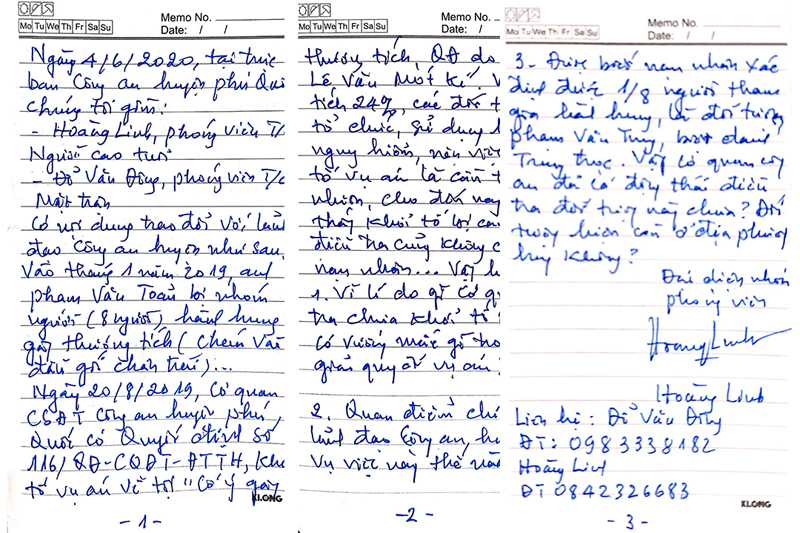 Memo No.
Mo Tu We Th Fr Sa Su
Date: / /
Ngày 4/6/2020, tại trực
ban Công an huyện Phú Quốc
chúng tôi gồm:
- Hoàng Linh, phóng viên T/c
Người cao tuổi
- Đỗ Văn Đông, phóng viên T/c
Mặt trận
Có nội dung trao đổi với lãnh
đạo Công an huyện như sau.
Vào tháng 1 năm 2019, anh
Phạm Văn Toàn bị nhóm
người (8 người) hành hung
gây thương tích (chém vào
đầu gối chân trái)...
Ngày 20/8/2019, cơ quan
CSĐT Công an huyện Phú
Quốc có Quyết định số
116/QĐ-CQĐT-ĐTTH, khởi
tố vụ án về tội "Cố ý gây
KLONG
-1-
Memo No.
Mo Tu We Th Fr Sa Su
Date: / /
thương tích, QĐ do
Lê Văn Một kí.
tích 24%, các đối t
tổ chức, sử dụng h
nguy hiểm, nên việ
tố vụ án là cần t
nhiên, cho đến nay
thấy khởi tố bị can
điều tra cũng không c
nạn nhân... Vậy h
1. Vì lí do gì cơ q
tra chưa khởi tố
có vướng mắc gì tro
giải quyết vụ án
2. Quan điểm chỉ
lãnh đạo Công an hu
vụ việc này thế nào
-2-
Memo No.
Mo Tu We Th Fr Sa Su
Date: / /
3- Được biết nạn nhân xác
định được 1/8 người tham
gia hành hung, là đối tượng
Phạm Văn Trung, biệt danh
Trung trọc. Vậy cơ quan công
an đã có động thái điều
tra đối tượng này chưa? Đối
tượng hiện còn ở địa phương
hay không?
Đại diện nhóm
phóng viên
Hoàng Linh
Hoàng Linh
Liên hệ: Đỗ Văn Đông
ĐT: 0983338182
Hoàng Linh
ĐT 0842326683
KLONG
-3-